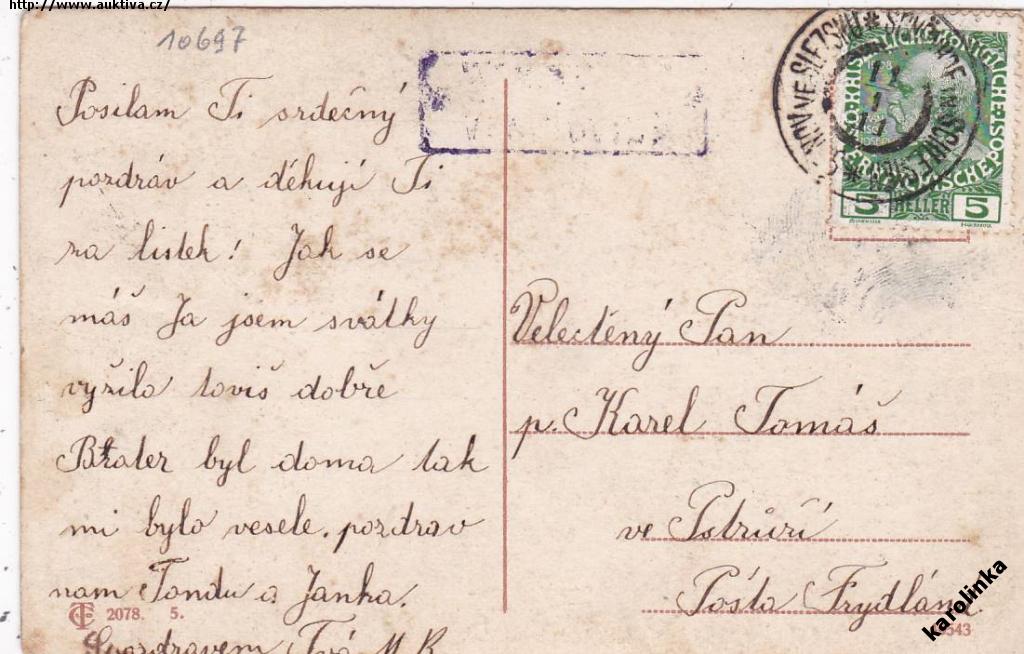 http://www.auktiva.cz/
10697
Posilam Ti srdečný
pozdráv a děkuji Ti
za listek! Jak se
máš Ja jsem svátky
vyžila toviš dobře
Brater byl doma tak
mi bylo vesele. pozdrav
nam Tondu a Janka.
S pozdravem Tvá M. B.
2078. 5.
5 HELLER 5
Velectěný Pan
p. Karel Tomáš
ve Pstruží
Pósta Frydland
karolinka